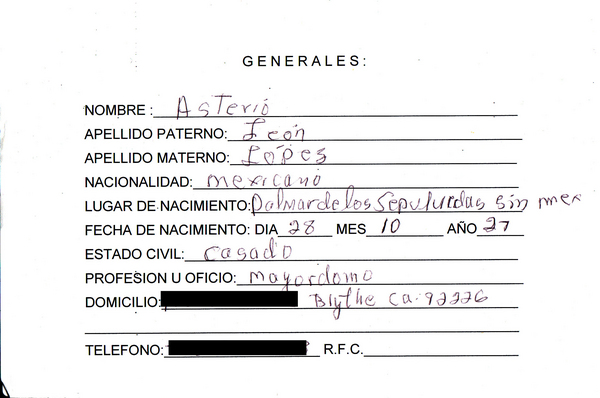 GENERALES:
NOMBRE: Asterio
APELLIDO PATERNO: León
APELLIDO MATERNO: Lópes
NACIONALIDAD: mexicano
LUGAR DE NACIMIENTO: Palmar de los Sepulvedas sin mex
FECHA DE NACIMIENTO: DIA 28 MES 10 AÑO 27
ESTADO CIVIL: casado
PROFESION U OFICIO: mayordomo
DOMICILIO: Blythe ca. 92226
TELEFONO: R.F.C.